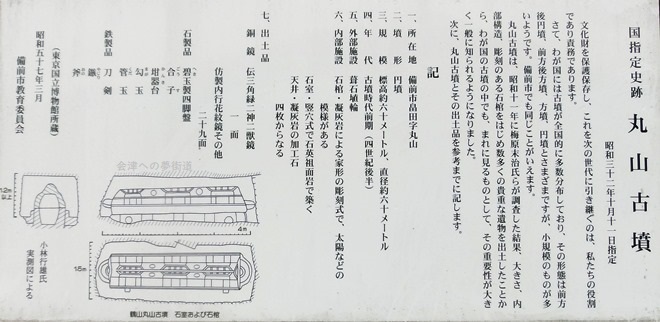 国指定史跡 丸山古墳
昭和三十二年十月十一日指定
文化財を保護保存し、これを次の世代に引き継ぐのは、私たちの役割
であり責務であります。
さて、わが国には古墳が全国的に多数分布しており、その形態は前方
後円墳、前方後方墳、方墳、円墳とさまざまですが、小規模のものが多
いようです。備前市でも同じことがいえます。
丸山古墳は、昭和十一年に梅原末治氏らが調査した結果、大きさ、内
部構造、彫刻のある石棺をはじめ数多くの貴重な遺物を出土したことか
ら、わが国の古墳の中でも、まれに見るものとして、その重要性が大き
く一般に知られるようになりました。
次に、丸山古墳とその出土品を参考までに記します。
記
一、所在地 備前市畠田字丸山
二、墳形 円墳
三、規模 標高約六十メートル、直径約六十メートル
四、年代 古墳時代前期(四世紀後半)
五、外部施設 葺石埴輪
六、内部施設 石棺・凝灰岩による家形の彫刻式で、太陽などの
模様がある
石室・竪穴式で石英粗面岩で築く
天井・凝灰岩の加工石
四枚からなる
七、出土品
銅鏡 伝三角縁二神二獣鏡
一面
仿製内行花紋鏡その他
二十九面
石製品 碧玉製四脚盤
合子
坩器台
勾玉
管玉
鉄製品 刀剣
鏃
斧
(東京国立博物館所蔵)
昭和五十七年三月
備前市教育委員会
会津への夢街道
1.2m以上
4m
1.5m
小林行雄氏
実測図による
鶴山丸山古墳 石室および石棺